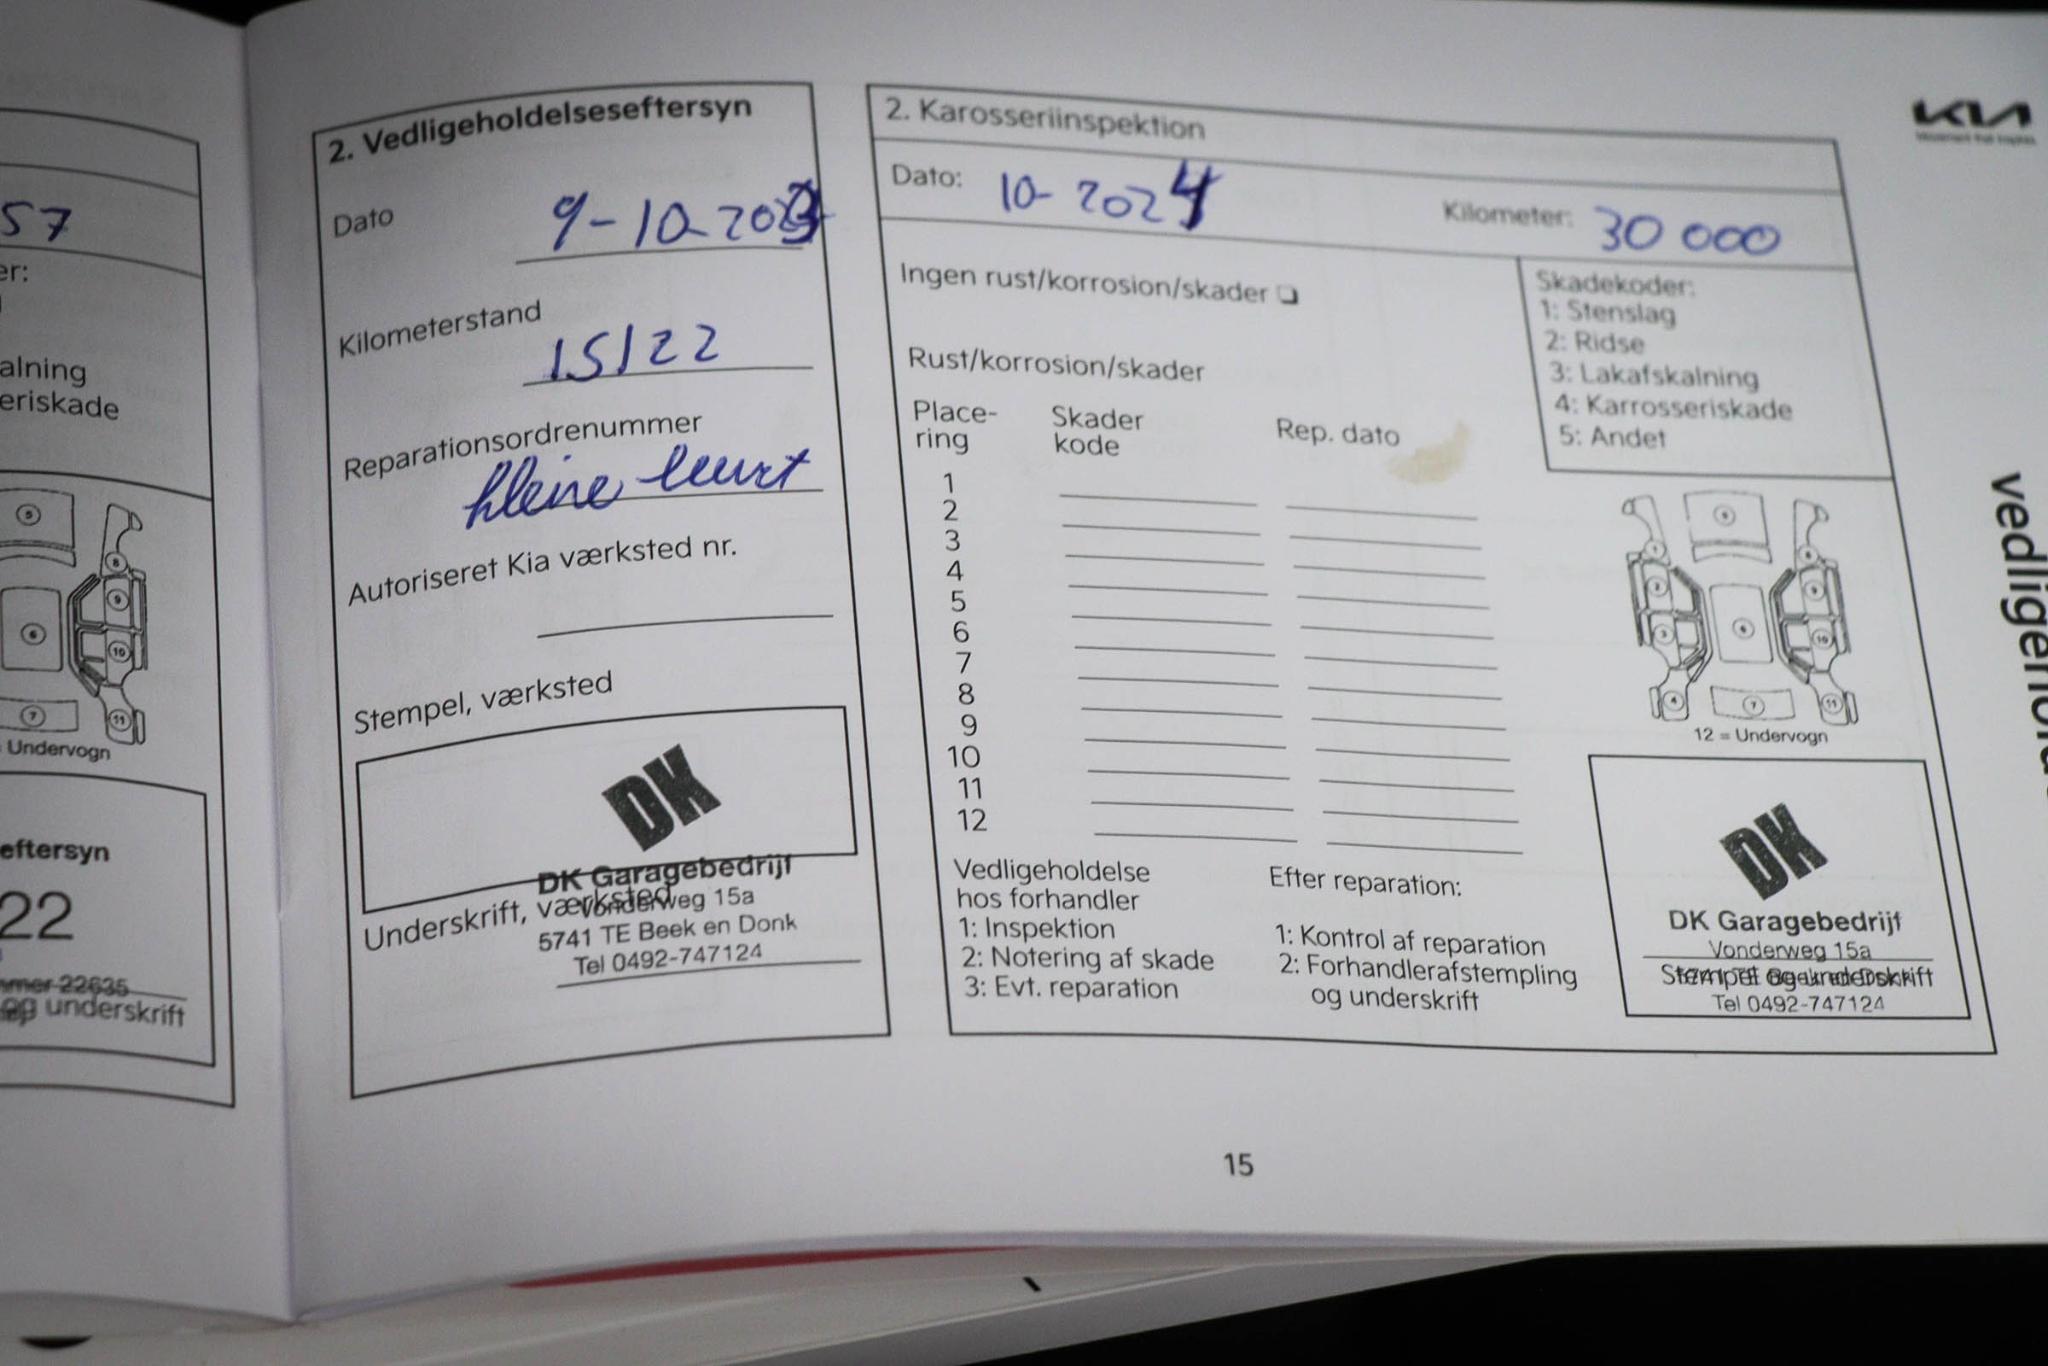 57
er:
alning
eriskade
5
8
9
6
10
7
11
Undervogn
eftersyn
22
mmer 22635
og underskrift
2. Vedligeholdelseseftersyn
Dato 9-10-2023
Kilometerstand
15122
Reparationsordrenummer
kleine beurt
Autoriseret Kia værksted nr.
Stempel, værksted
DK
DK Garagebedrijf
Underskrift, værksted
Vonderweg 15a
5741 TE Beek en Donk
Tel 0492-747124
2. Karosseriinspektion
Dato: 10-2024 Kilometer: 30 000
Ingen rust/korrosion/skader
Rust/korrosion/skader
Place-
ring
Skader
kode
Rep. dato
1
2
3
4
5
6
7
8
9
10
11
12
Skadekoder:
1: Stenslag
2: Ridse
3: Lakafskalning
4: Karrosseriskade
5: Andet
12 = Undervogn
Vedligeholdelse
hos forhandler
1: Inspektion
2: Notering af skade
3: Evt. reparation
Efter reparation:
1: Kontrol af reparation
2: Forhandlerafstempling
og underskrift
DK
DK Garagebedrijf
Vonderweg 15a
Stempel og underskrift
Tel 0492-747124
KIA
vedligehold
15